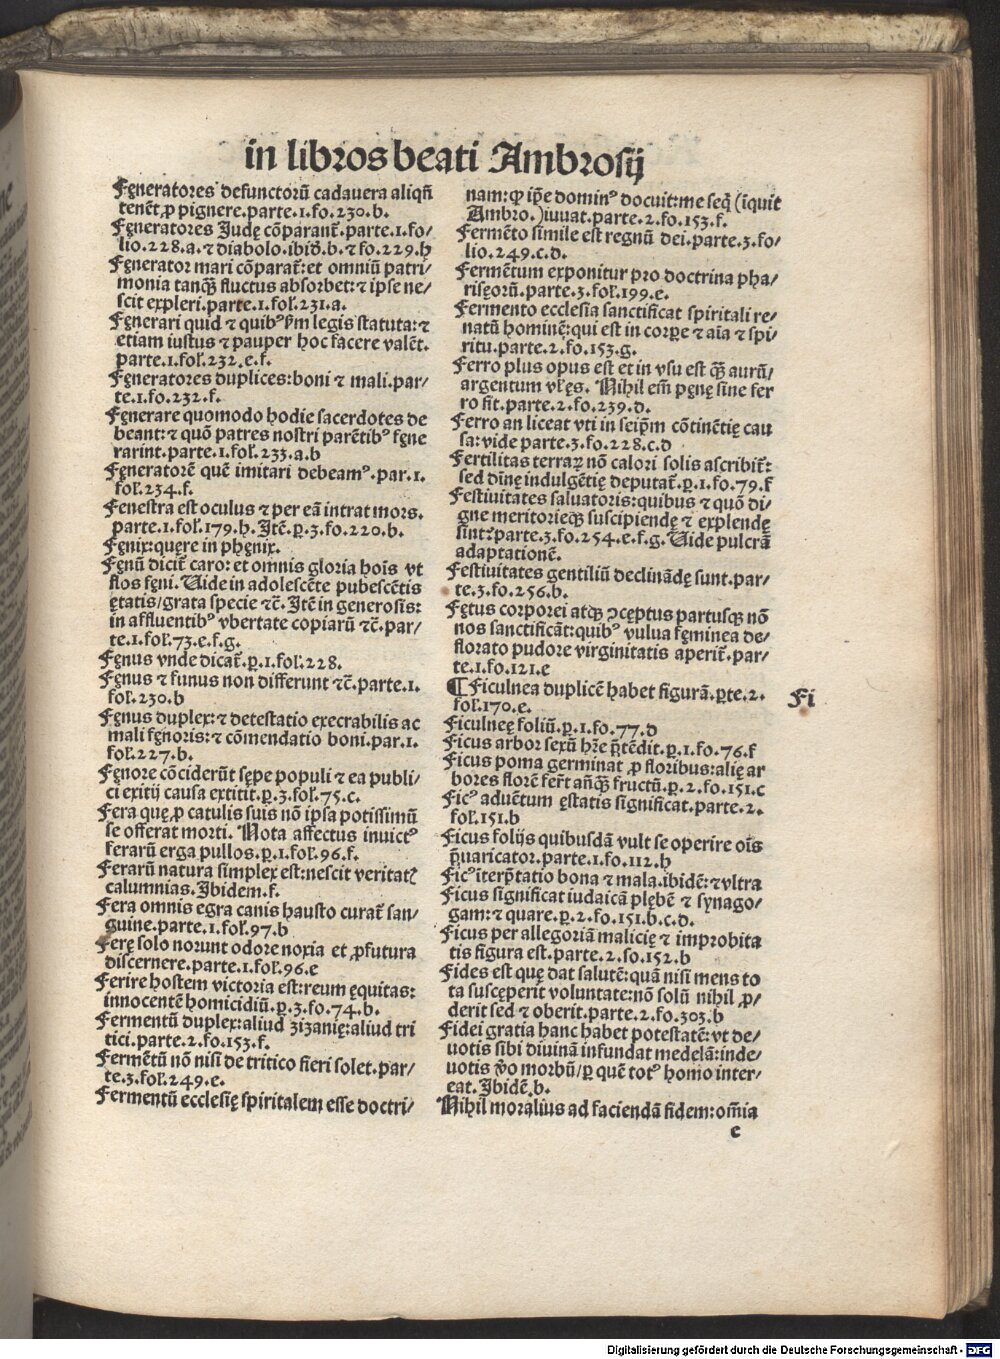 in libros beati Ambrosij
Fęneratores defunctorũ cadauera aliqñ
tenẽt ꝓ pignere.parte.1.fo.230.b.
Fęneratores Iudę cõparant᷑.parte.1.fo/
lio.228.a.⁊ diabolo.ibid̃.b.⁊ fo.229.h
Fęnerator mari cõparat᷑:et omniũ patri/
monia tanqȝ fluctus absorbet:⁊ ipse ne/
scit expleri.parte.1.fol̃.231.a.
Fęnerari quid ⁊ quibꝰ ẜm legis statuta:⁊
etiam iustus ⁊ pauper hoc facere valẽt.
parte.1.fol̃.232.e.f.
Fęneratores duplices:boni ⁊ mali.par/
te.1.fo.232.f.
Fęnerare quomodo hodie sacerdotes de
beant:⁊ quõ patres nostri parẽtibꝰ fęne
rarint.parte.1.fol̃.233.a.b
Fęneratorẽ quẽ imitari debeamꝰ.par.1.
fol̃.234.f.
Fenestra est oculus ⁊ per eã intrat mors.
parte.1.fol̃.179.h. Itẽ.p̱.3.fo.220.b.
Fęnix:quęre in phęnix.
Fęnũ dicit᷑ caro:et omnis gloria hoĩs vt
flos fęni. Uide in adolescẽte pubescẽtis
ętatis/grata specie ⁊c̃. Itẽ in generosis:
in affluentibꝰ vbertate copiarũ ⁊c̃.par/
te.1.fol̃.73.e.f.g.
Fęnus vnde dicat᷑.p̱.1.fol̃.228.
Fęnus ⁊ funus non differunt ⁊c̃.parte.1.
fol̃.230.b
Fęnus duplex:⁊ detestatio execrabilis ac
mali fęnoris:⁊ cõmendatio boni.par.1.
fol̃.227.b.
Fęnore cõciderũt sępe populi ⁊ ea publi/
ci exitij causa extitit.p̱.3.fol̃.75.c.
Fera quę ꝓ catulis suis nõ ipsa potissimũ
se offerat morti. Nota affectus inuictꝰ
ferarũ erga pullos.p̱.1.fol̃.96.f.
Ferarũ natura simplex est:nescit veritatꝭ
calumnias. Ibidem.f.
Fera omnis egra canis hausto curat᷑ san/
guine.parte.1.fol̃.97.b
Ferę solo norunt odore noxia et ꝓfutura
discernere.parte.1.fol̃.96.e
Ferire hostem victoria est:reum ęquitas:
innocentẽ homicidiũ.p̱.3.fo.74.b.
Fermentũ duplex:aliud zizanię:aliud tri
tici.parte.2.fo.153.f.
Fermẽtũ nõ nisi de tritico fieri solet.par/
te.3.fol̃.249.e.
Fermentũ ecclesię spiritalem esse doctri/
nam:ꝙ ip̃e dominꝰ docuit:me seq̃ (ĩquit
Ambro.)iuuat.parte.2.fo.153.f.
Fermẽto simile est regnũ dei.parte.3.fo/
lio.249.c.d.
Fermẽtum exponitur pro doctrina pha/
risęorũ.parte.3.fol̃.199.e.
Fermento ecclesia sanctificat spiritali re/
natũ hominẽ:qui est in corpe ⁊ aĩa ⁊ spi/
ritu.parte.2.fo.153.g.
Ferro plus opus est et in vsu est qȝ aurũ/
argentum vl̃ ęs. Nihil em̃ penę sine fer
ro fit.parte.2.fo.239.d.
Ferro an liceat vti in seip̃m cõtinẽtię cau
sa:vide parte.3.fo.228.c.d
Fertilitas terraꝝ nõ calori solis ascribit᷑:
sed diuinę indulgẽtię deputat᷑.p̱.1.fo.79.f
Festiuitates saluatoris:quibus ⁊ quõ di/
gne meritorieqȝ suscipiendę ⁊ explendę
sint?parte.3.fo.254.e.f.g. Uide pulcrã
adaptationẽ.
Festiuitates gentiliũ declinãdę sunt.par/
te.3.fo.256.b.
Fętus corporei atqȝ ↄceptus partusqȝ nõ
nos sanctificãt:quibꝰ vulua fęminea de/
florato pudore virginitatis aperit᷑.par/
te.1.fo.121.e
¶ Ficulnea duplicẽ habet figurã.p̱te.2.
fol̃.170.e.
Fi
Ficulneę foliũ.p̱.1.fo.77.d
Ficus arbor sexũ hr̃e p̃tẽdit.p̱.1.fo.76.f
Ficus poma germinat ꝓ floribus:alię ar
bores florẽ fer̃t añqȝ fructũ.p̱.2.fo.151.c
Ficꝰ aduẽtum ęstatis significat.parte.2.
fol̃.151.b
Ficus folijs quibusdã vult se operire oĩs
p̃uaricator.parte.1.fo.112.h
Ficꝰ ĩterp̃tatio bona ⁊ mala.ibidẽ:⁊ vltra
Ficus significat iudaicã plębẽ ⁊ synago/
gam:⁊ quare.p̱.2.fo.151.b.c.d.
Ficus per allegoriã malicię ⁊ improbita
tis figura est.parte.2.fo.152.b
Fides est quę dat salutẽ:quã nisi mens to
ta suscęperit voluntate:nõ solũ nihil ꝓ/
derit sed ⁊ oberit.parte.2.fo.303.b
Fidei gratia hanc habet potestatẽ:vt de/
uotis sibi diuinã infundat medelã:inde/
uotis ꝟo morbũ/p̱ quẽ totꝰ homo inter/
eat. Ibidẽ.b.
Nihil moralius ad faciendã fidem:om̃ia
e
Digitalisierung gefördert durch die Deutsche Forschungsgemeinschaft - DFG